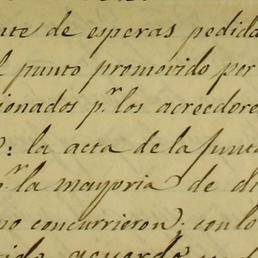 nte de esperas pedida
l punto promovido por
ionados p.r los acreedore
: la acta de la Junta
p.r la mayoria de di
no concurrieron; con lo
acuerdo